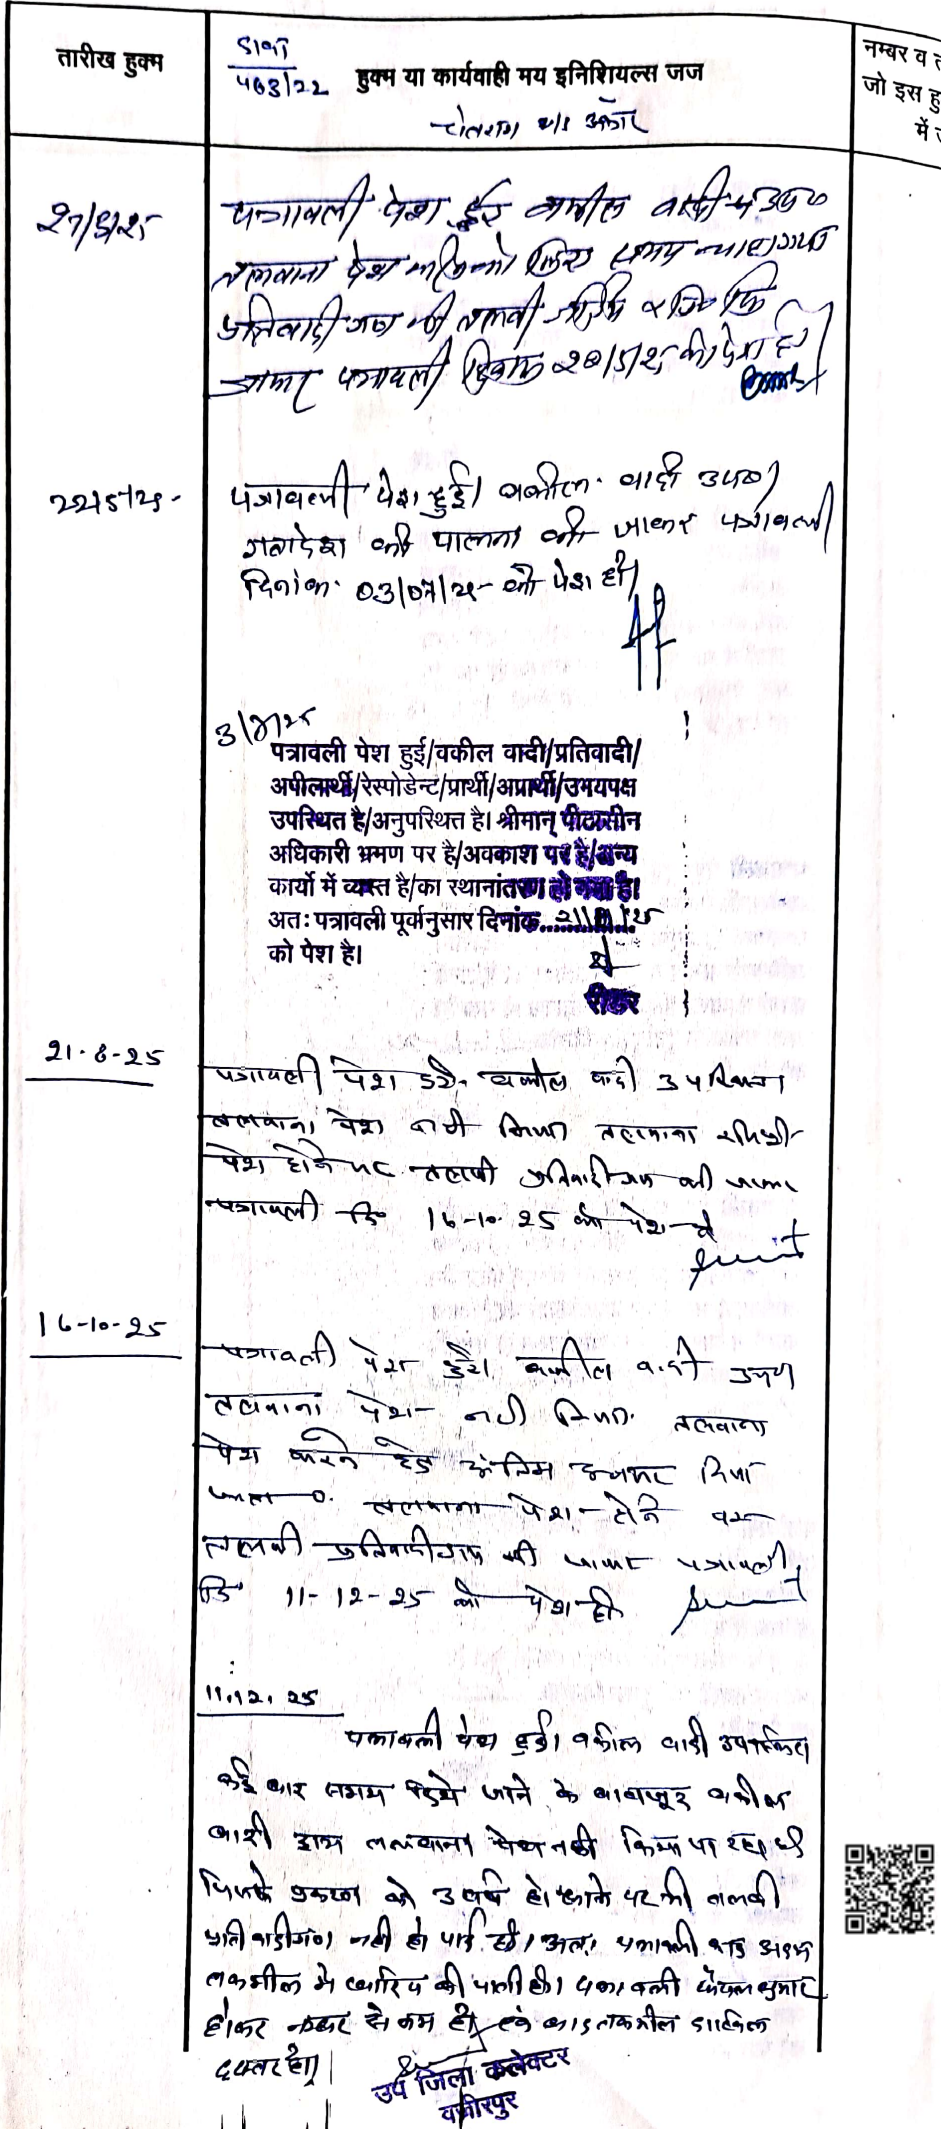 तारीख हुक्म
दावा
463/22 हुक्म या कार्यवाही मय इनिशियल्स जज
नम्बर व
जो इस हु
में
पत्रावली पेश हुई वकील वादी उप०
तलवाना पेश करने के लिए समय चाहा गया
प्रतिवादीगण की तलबी
जाकर पत्रावली दिनांक 22/5/25 को पेश हो
22/5/25
पत्रावली पेश हुई। वकील वादी उप०।
गतादेश की पालना की जाकर पत्रावली
दिनांक 03/07/25 को पेश हो।
3/7/25
पत्रावली पेश हुई/वकील वादी/प्रतिवादी/
अपीलार्थी/रेस्पोडेन्ट/प्रार्थी/अप्रार्थी/उभयपक्ष
उपस्थित है/अनुपस्थित है। श्रीमान् पीठासीन
अधिकारी भ्रमण पर है/अवकाश पर है/अन्य
कार्यो में व्यस्त है/का स्थानांतरण हो गया है।
अतः पत्रावली पूर्वानुसार दिनांक 21/8/25
को पेश है।
रीडर
21-8-25
पत्रावली पेश हुई वकील वादी उपस्थित
तलवाना पेश नही किया तलवाना रजिस्ट्री
पेश होने पर तलबी प्रतिवादीगण की जाकर
पत्रावली दि० 16-10-25 को पेश हो
16-10-25
पत्रावली पेश हुई। वकील वादी उप०
तलवाना पेश नही किया तलवाना
पेश करने हेतु अंतिम अवसर दिया
जाता है. तलवाना पेश होने पर
तलबी प्रतिवादीगण की जाकर पत्रावली
दि 11-12-25 को पेश हो
11.12.25
पत्रावली पेश हुई। वकील वादी उपस्थित।
कई बार समय दिये जाने के बावजूद वकील
वादी द्वारा तलवाना पेश नही किया जा रहा है
जिससे प्रकरण को 3 वर्ष हो जाने पर भी तलबी
प्रतिवादीगण नही हो पाई है। अतः पत्रावली वाद अदम
तकमील मे खारिज की जाती है। पत्रावली फैसल शुमार
होकर नम्बर से कम हो एवं बाद तकमील दाखिल
दफ्तर हो।
उप जिला कलेक्टर
वजीरपुर